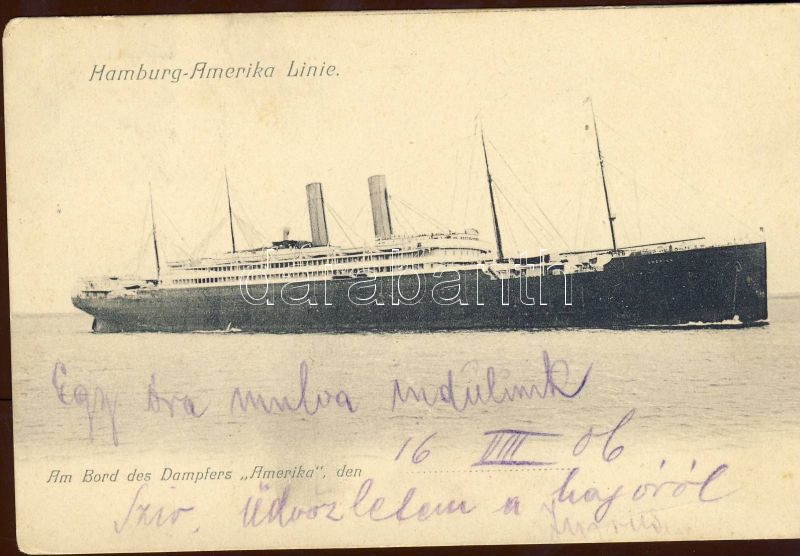 Hamburg-Amerika Linie.
AMERIKA
darabanth
Egy óra mulva indúlunk
16 VIII 06
Am Bord des Dampfers „Amerika", den
Sziv. Üdvözletem a hajóról